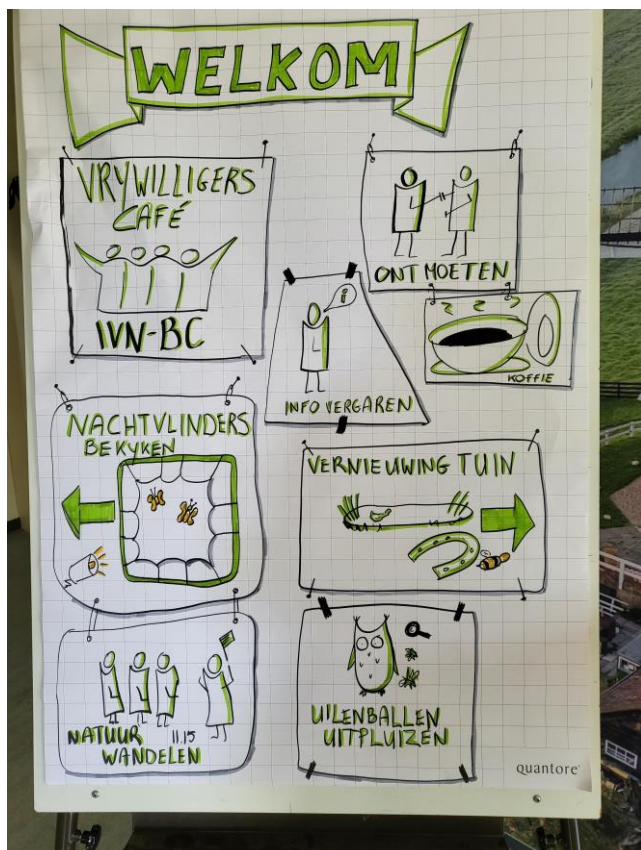 WELKOM
VRYWILLIGERS
CAFÉ
IVN-BC
ONTMOETEN
i
INFO VERGAREN
KOFFIE
NACHTVLINDERS
BEKYKEN
VERNIEUWING TUIN
NATUUR 11.15
WANDELEN
UILENBALLEN
UITPLUIZEN
quantore